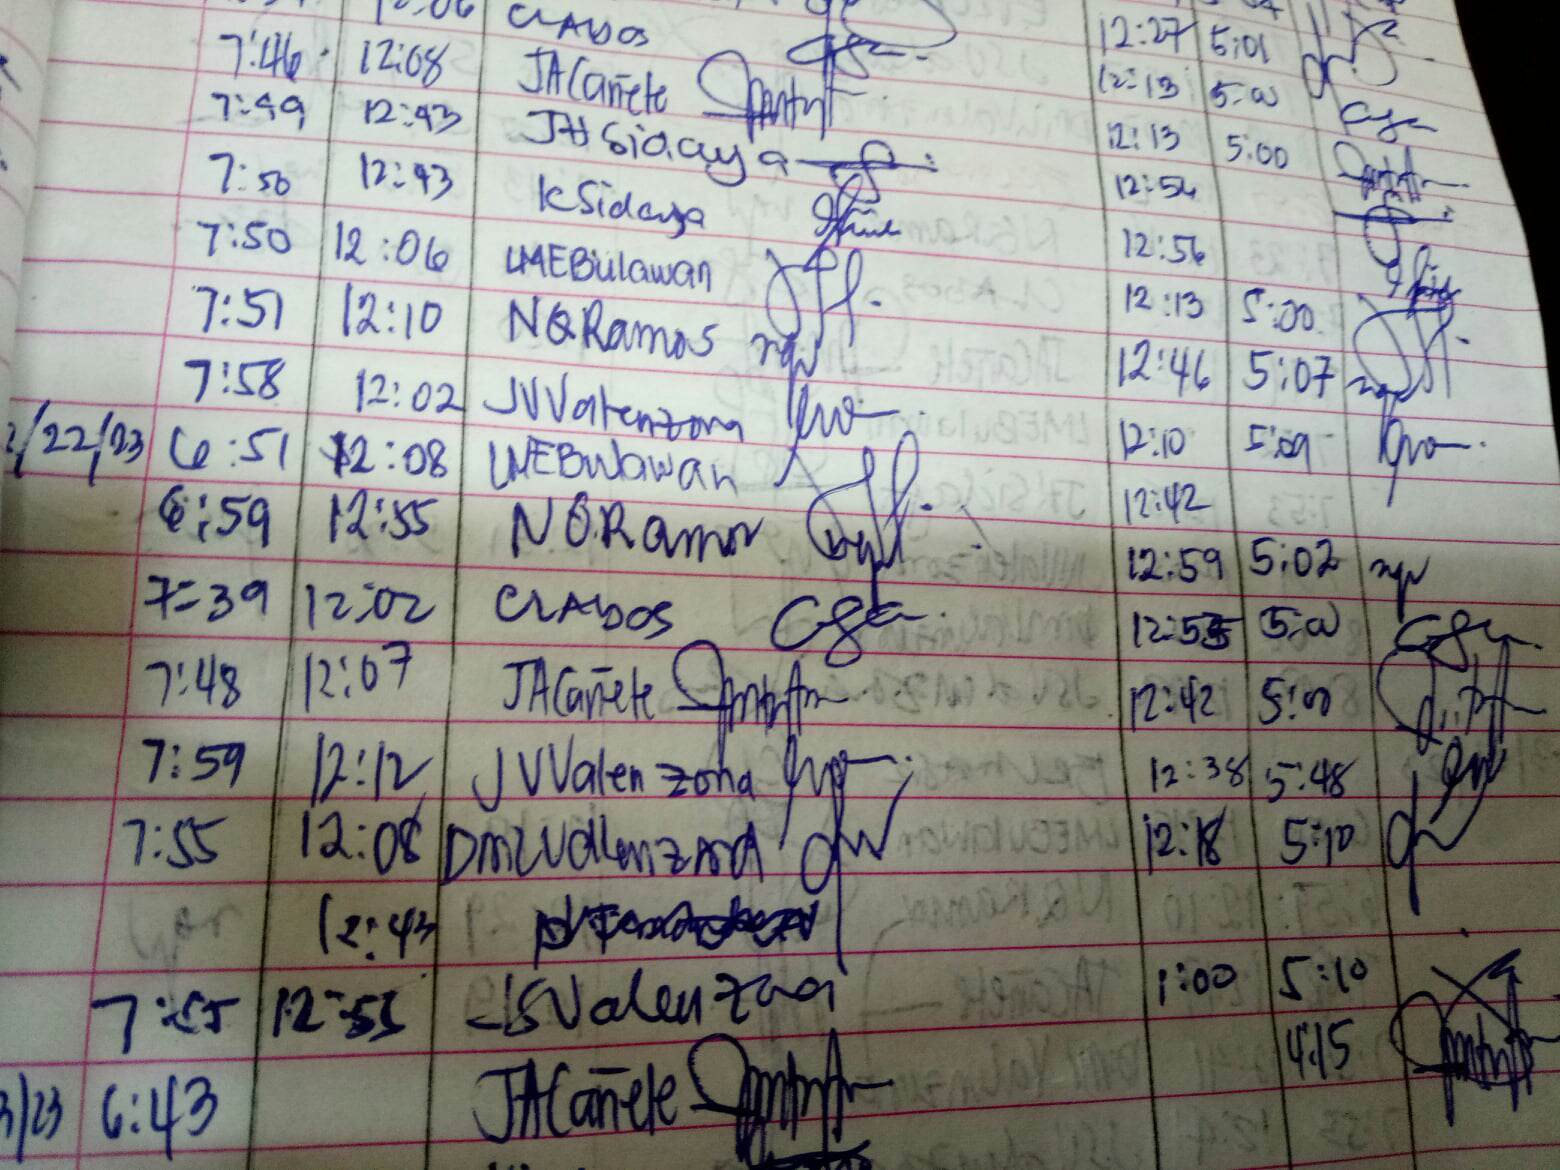 12:06 CLAbos 12:27 5:01
7:46 12:08 JACañete 12:13 5:00
7:49 12:43 JHSidaya 12:13 5:00
7:50 12:43 KSidaya 12:54
7:50 12:06 LMEBulawan 12:56
7:51 12:10 NQRamos 12:13 5:00
7:58 12:02 JVValenzona 12:46 5:07
/22/23 6:51 12:08 LMEBulawan 12:10 5:09
6:59 12:55 NQRamos 12:42
7:39 12:02 CLAbos 12:59 5:02
7:48 12:07 JACañete 12:55 5:00
7:59 12:12 JVValenzona 12:42 5:00
7:55 12:08 DMZValenzona 12:38 5:48
12:43 12:18 5:10
7:55 12:55 JSValenzona 1:00 5:10
3/23 6:43 JACañete 4:15